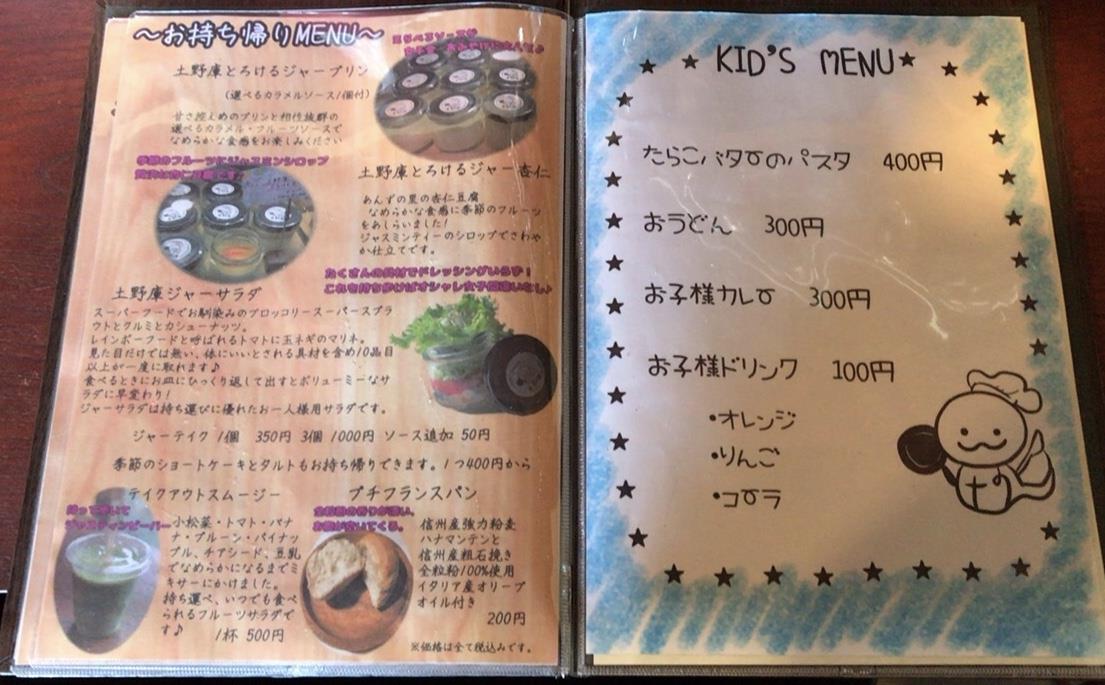 〜お持ち帰りMENU〜
土野庫とろけるジャープリン
(選べるカラメルソース/1個付)
甘さ控えめのプリンと相性抜群の
選べるカラメル・フルーツソースで
なめらかな食感をお楽しみください
季節のフルーツにジャスミンシロップ
土野庫とろけるジャー杏仁
あんずの里の杏仁豆腐
なめらかな食感に季節のフルーツ
をあしらいました!
ジャスミンティーのシロップでさわや
か仕立てです。
たくさんの具材でドレッシングいらず!
これを持ち歩けばオシャレ女子間違いなし♪
土野庫ジャーサラダ
スーパーフードでお馴染みのブロッコリースーパースプラ
ウトとクルミとカシューナッツ。
レインボーフードと呼ばれるトマトに玉ネギのマリネ。
見た目だけでは無い、体にいいとされる具材を含め10品目
以上が一度に取れます♪
食べるときにお皿にひっくり返して出すとボリューミーなサ
ラダに早変わり!
ジャーサラダは持ち運びに優れたお一人様用サラダです。
ジャーテイク 1個 350円 3個 1000円 ソース追加 50円
季節のショートケーキとタルトもお持ち帰りできます。1つ400円から
テイクアウトスムージー
小松菜・トマト・バナ
ナ・プルーン・パイナッ
プル、チアシード、豆乳
でなめらかになるまでミ
キサーにかけました。
持ち運べ、いつでも食べ
られるフルーツサラダで
す♪
1杯 500円
プチフランスパン
全粒粉の香りが漂い、
お腹が空いてくる。
信州産強力粉麦
ハナマンテンと
信州産粗石挽き
全粒粉100%使用
イタリア産オリーブ
オイル付き
200円
※価格は全て税込みです。
★ KID'S MENU ★
たらこバターのパスタ 400円
おうどん 300円
お子様カレー 300円
お子様ドリンク 100円
・オレンジ
・りんご
・コーラ